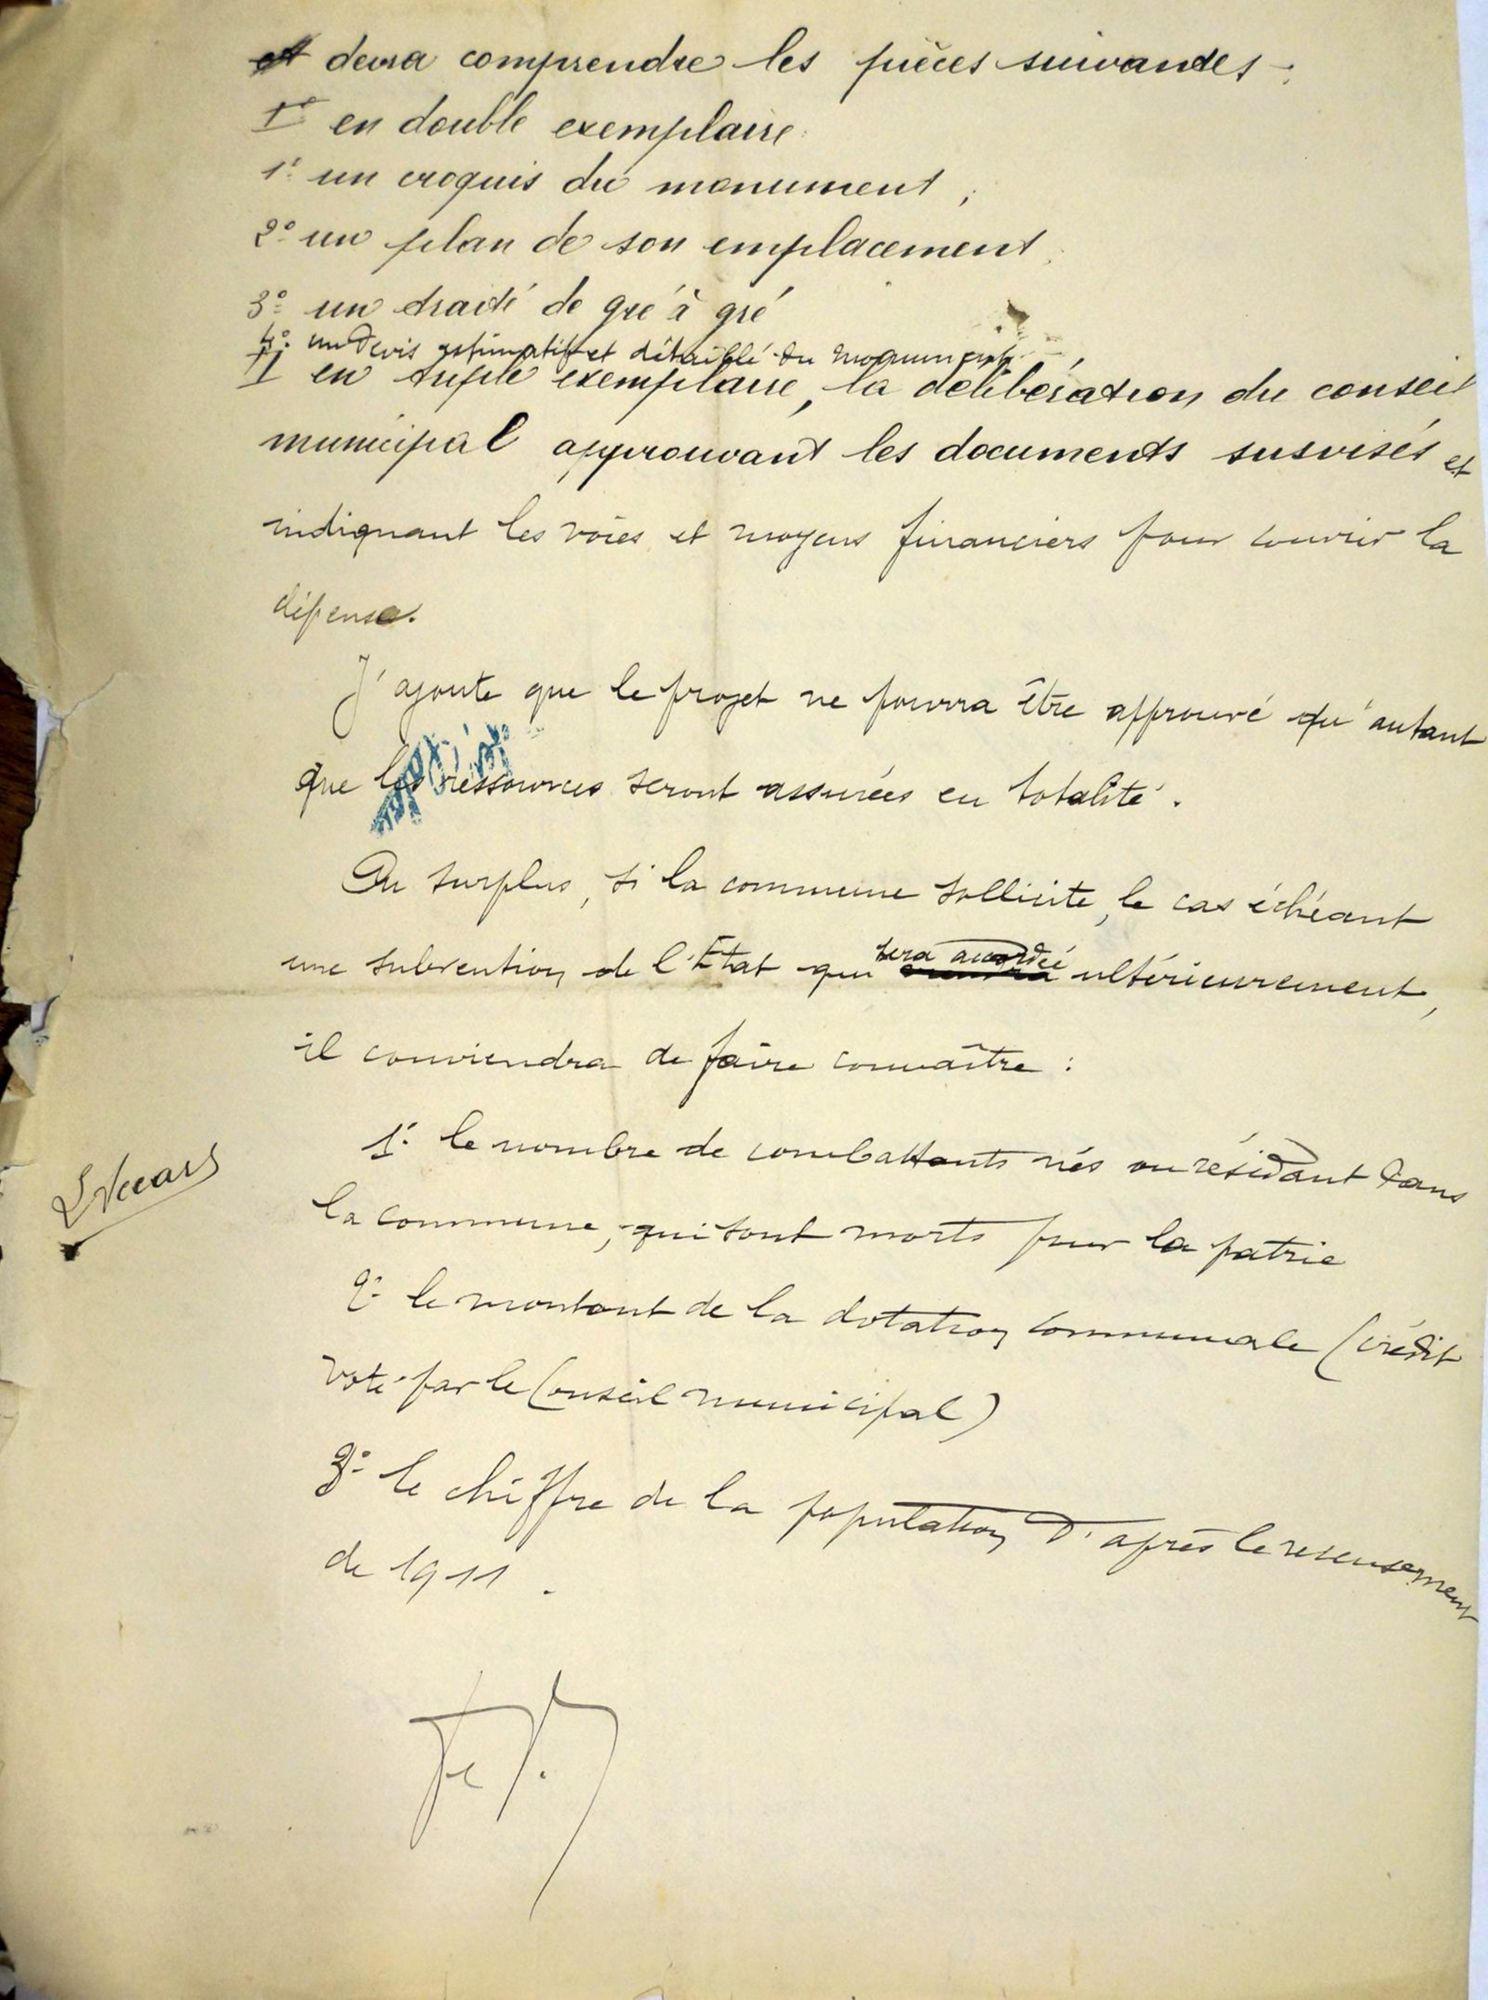 et devra comprendre les pièces suivantes :
I° en double exemplaire
1° un croquis du monument ;
2° un plan de son emplacement
3° un traité de gré à gré
4° un devis estimatif et détaillé du monument
II en triple exemplaire, la délibération du conseil
municipal approuvant les documents susvisés et
indiquant les voies et moyens financiers pour couvrir la
dépense.
J'ajoute que le projet ne pourra être approuvé qu'autant
que les ressources seront assurées en totalité.
Au surplus, si la commune sollicite, le cas échéant
une subvention de l'Etat qui sera accordée ultérieurement,
il conviendra de faire connaître :
1° le nombre de combattants nés ou résidant dans
la commune, qui sont morts pour la patrie
2° le montant de la dotation communale (crédit
voté par le Conseil municipal)
3° le chiffre de la population d'après le recensement
de 1911.